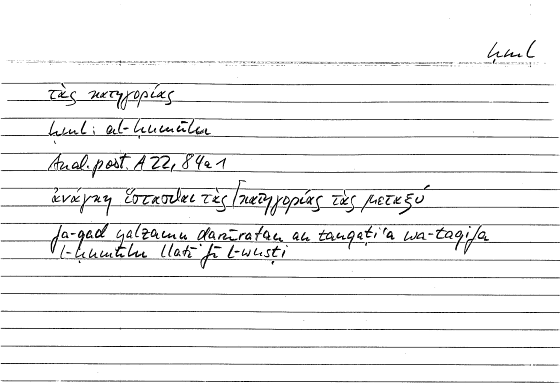 ḥml
τὰς κατηγορίας
ḥml : al-ḥumūlu
Anal. post. A 22, 84a1
ἀνάγκη ἵστασθαι τὰς κατηγορίας τὰς μεταξύ
fa-qad yalzamu ḍarūratan an tanqaṭiʿa wa-taqifa
l-ḥumūlu llatī fī l-wusṭi